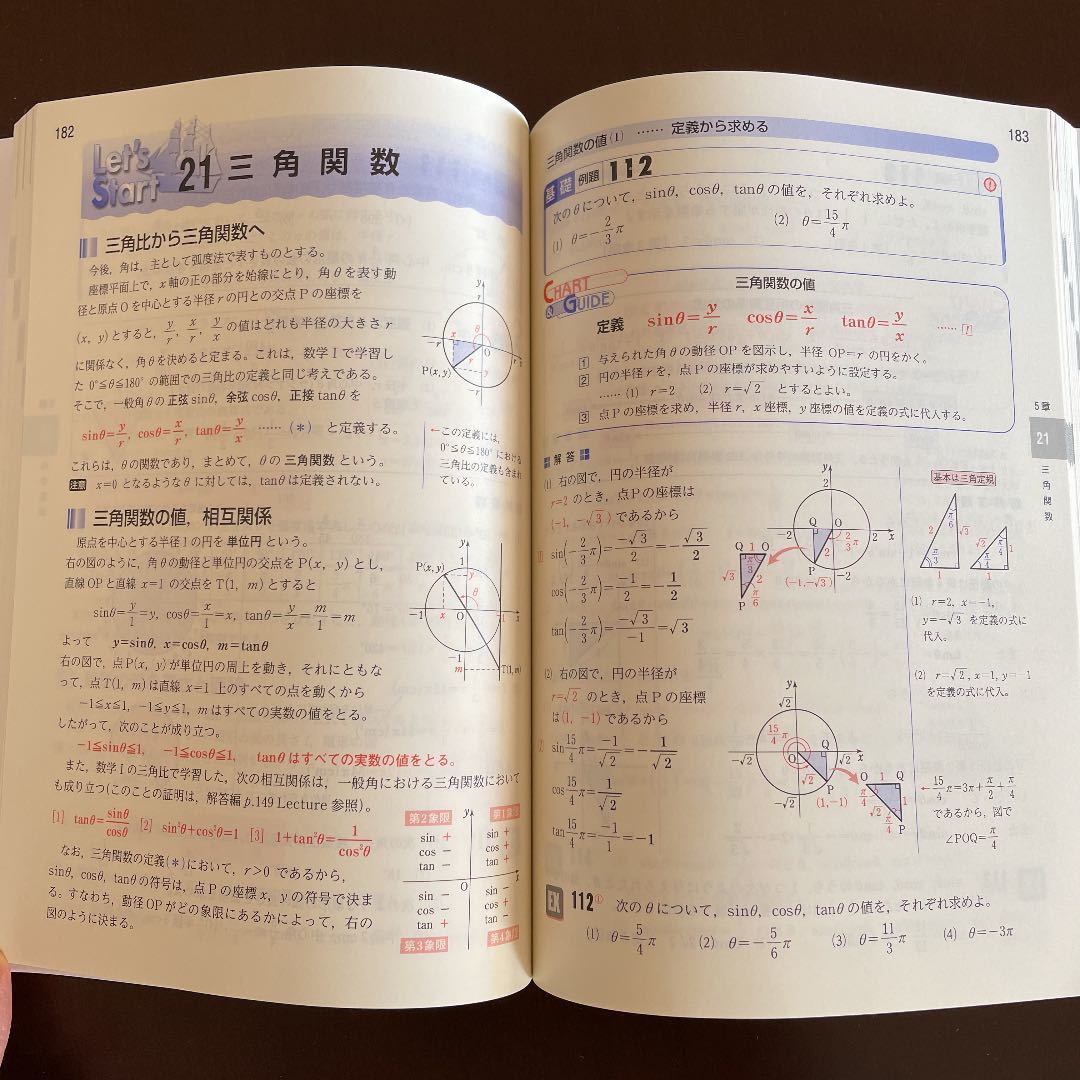 182
Let's Start 21 三角関数
三角比から三角関数へ
今後，角は，主として弧度法で表すものとする。
座標平面上で，x軸の正の部分を始線にとり，角θを表す動
径と原点Oを中心とする半径rの円との交点Pの座標を
(x, y)とすると，y/r, x/r, y/x の値はどれも半径の大きさr
に関係なく，角θを決めると定まる。これは，数学Ⅰで学習し
た 0°≦θ≦180° の範囲での三角比の定義と同じ考えである。
そこで，一般角θの 正弦 sinθ，余弦 cosθ，正接 tanθ を
sinθ=y/r, cosθ=x/r, tanθ=y/x ……(*) と定義する。
これらは，θの関数であり，まとめて，θの 三角関数 という。
注意 x=0 となるようなθに対しては，tanθは定義されない。
y
r
x
θ
O
r
-r
y
P(x, y)
r
-r
←この定義には，
0°≦θ≦180°における
三角比の定義も含まれ
ている。
三角関数の値，相互関係
原点を中心とする半径1の円を 単位円 という。
右の図のように，角θの動径と単位円の交点をP(x, y)とし，
直線OPと直線 x=1 の交点をT(1, m)とすると
sinθ=y/1=y, cosθ=x/1=x, tanθ=y/x=m/1=m
よって y=sinθ, x=cosθ, m=tanθ
右の図で，点P(x, y)が単位円の周上を動き，それにともな
って，点T(1, m)は直線 x=1 上のすべての点を動くから
-1≦x≦1, -1≦y≦1, mはすべての実数の値をとる。
したがって，次のことが成り立つ。
-1≦sinθ≦1, -1≦cosθ≦1, tanθはすべての実数の値をとる。
また，数学Ⅰの三角比で学習した，次の相互関係は，一般角における三角関数において
も成り立つ(このことの証明は，解答編 p.149 Lecture 参照)。
[1] tanθ=sinθ/cosθ [2] sin²θ+cos²θ=1 [3] 1+tan²θ=1/cos²θ
なお，三角関数の定義(*)において，r>0 であるから，
sinθ, cosθ, tanθの符号は，点Pの座標x, yの符号で決ま
る。すなわち，動径OPがどの象限にあるかによって，右の
図のように決まる。
y
1
P(x, y)
y
θ
-1
x
O
-1
m
T(1, m)
第2象限
y
第1象限
sin +
cos -
tan -
sin +
cos +
tan +
O
x
sin -
cos -
tan +
sin -
cos +
tan -
第3象限
第4象限
183
三角関数の値(1) …… 定義から求める
基礎 例題 112
次のθについて，sinθ, cosθ, tanθの値を，それぞれ求めよ。
(1) θ=-2/3π (2) θ=15/4π
CHART & GUIDE
三角関数の値
定義 sinθ=y/r cosθ=x/r tanθ=y/x ……!
1 与えられた角θの動径OPを図示し，半径 OP=r の円をかく。
2 円の半径rを，点Pの座標が求めやすいように設定する。
……(1) r=2 (2) r=√2 とするとよい。
3 点Pの座標を求め，半径r，x座標，y座標の値を定義の式に代入する。
解答
(1) 右の図で，円の半径が
r=2 のとき，点Pの座標は
(-1, -√3) であるから
! sin(-2/3π)=-√3/2=-√3/2
cos(-2/3π)=-1/2=-1/2
tan(-2/3π)=-√3/-1=√3
y
2
Q
O
-2
2
x
-2/3π
P
-2
(-1, -√3)
Q 1 O
√3
π/3
2
π/6
P
(2) 右の図で，円の半径が
r=√2 のとき，点Pの座標
は(1, -1)であるから
! sin15/4π=-1/√2=-1/√2
cos15/4π=1/√2
tan15/4π=-1/1=-1
y
√2
15/4π
Q
-√2
O
√2
x
P
-√2
(1, -1)
O 1 Q
π/4
1
√2
π/4
P
基本は三角定規
π/6
2
√3
π/3
1
π/4
√2
1
π/4
1
(1) r=2, x=-1,
y=-√3 を定義の式に
代入。
(2) r=√2, x=1, y=-1
を定義の式に代入。
←15/4π=3π+π/2+π/4
であるから，図で
∠POQ=π/4
5章
21
三角関数
EX 112 次のθについて，sinθ, cosθ, tanθの値を，それぞれ求めよ。
(1) θ=5/4π (2) θ=-5/6π (3) θ=11/3π (4) θ=-3π